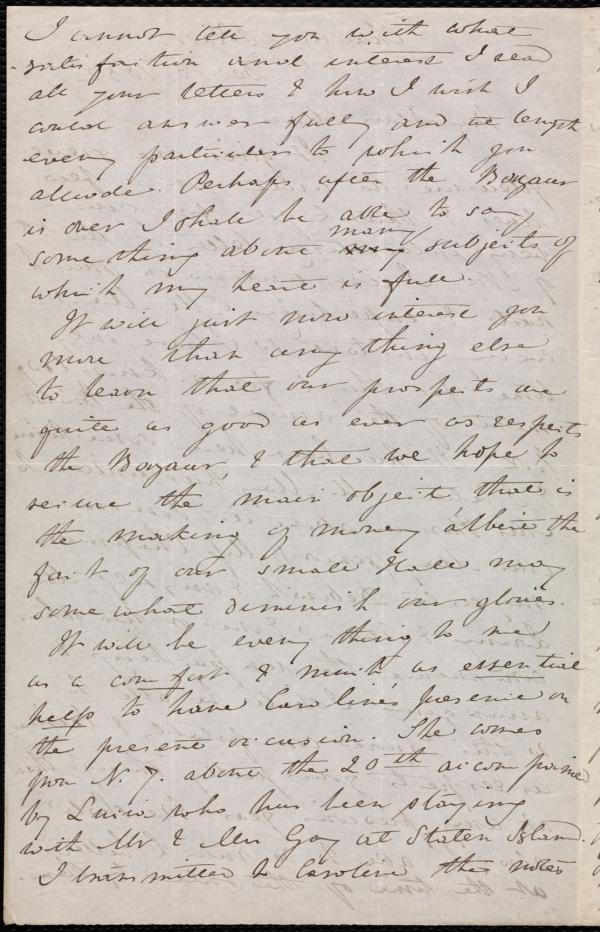 I cannot tell you with what
satisfaction and interest I read
all your letters & how I wish I
could answer fully and at length
every particular to which you
allude. Perhaps after the Bazaar
is over I shall be able to say
something about many subjects of
which my heart is full.
It will just now interest you
more than any thing else
to learn that our prospects are
quite as good as ever as respects
the Bazaar, & that we hope to
secure the main object that is
the making of money albeit the
fact of our small Hall may
somewhat diminish our glories.
It will be every thing to me
as a comfort & much as essential
help to have Caroline's presence on
the present occasion. She comes
from N. Y. about the 20th accompanied
by Lucia who has been staying
with Mr & Mrs Gay at Staten Island.
I transmitted to Caroline the notes